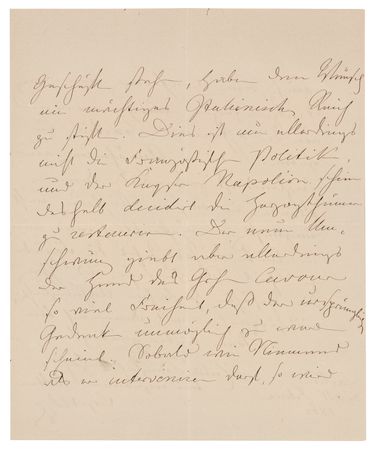 Geschäft steht, haben den Wunsch
ein mächtiges Italienisch Reich
zu stift. Dies ist nun allerdings
nicht die Französische Politik,
und der Kayser Napoleon schien
deshalb decidirt die Herzogthümer
zu restauriren. Der neue Um-
schwung giebt aber allerdings
der Hand des Grafen Cavour
so viel Freiheit, daß der ursprüngliche
Gedanke unmöglich zu werden
scheint. Sobald wie Niemand
als er interveniren darf, so wird